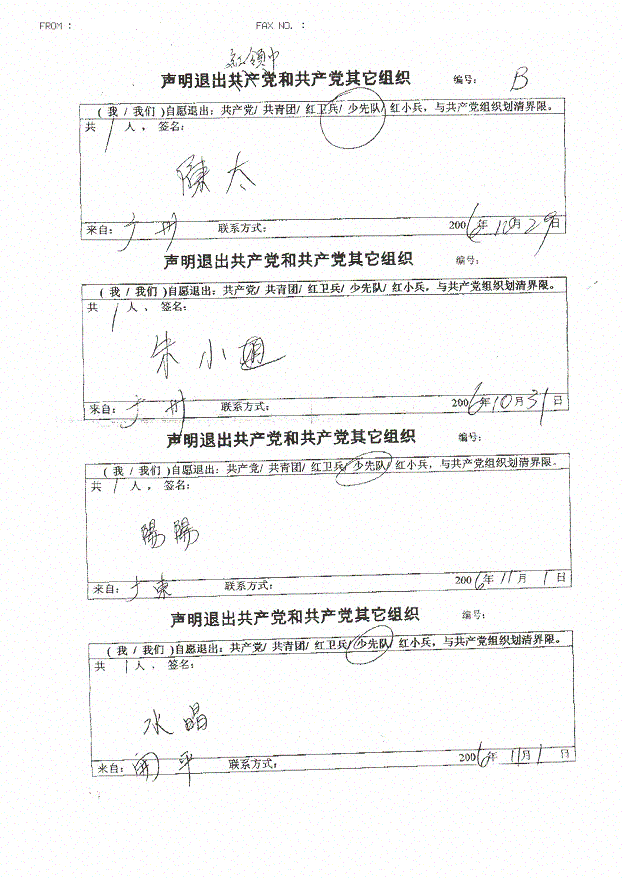 FROM : FAX NO. :
红领巾
声明退出共产党和共产党其它组织 编号: B
( 我 / 我们 )自愿退出: 共产党/ 共青团/ 红卫兵/ 少先队/ 红小兵，与共产党组织划清界限。
共 1 人 ，签名:
陳太
来自: 广州 联系方式: 2006年10月29日
声明退出共产党和共产党其它组织 编号:
( 我 / 我们 )自愿退出: 共产党/ 共青团/ 红卫兵/ 少先队/ 红小兵，与共产党组织划清界限。
共 1 人 ，签名:
朱小
来自: 广州 联系方式: 2006年10月31日
声明退出共产党和共产党其它组织 编号:
( 我 / 我们 )自愿退出: 共产党/ 共青团/ 红卫兵/ 少先队/ 红小兵，与共产党组织划清界限。
共 1 人 ，签名:
陽陽
来自: 广東 联系方式: 2006年11月1日
声明退出共产党和共产党其它组织 编号:
( 我 / 我们 )自愿退出: 共产党/ 共青团/ 红卫兵/ 少先队/ 红小兵，与共产党组织划清界限。
共 1 人 ，签名:
水晶
来自: 開平 联系方式: 2006年11月1日